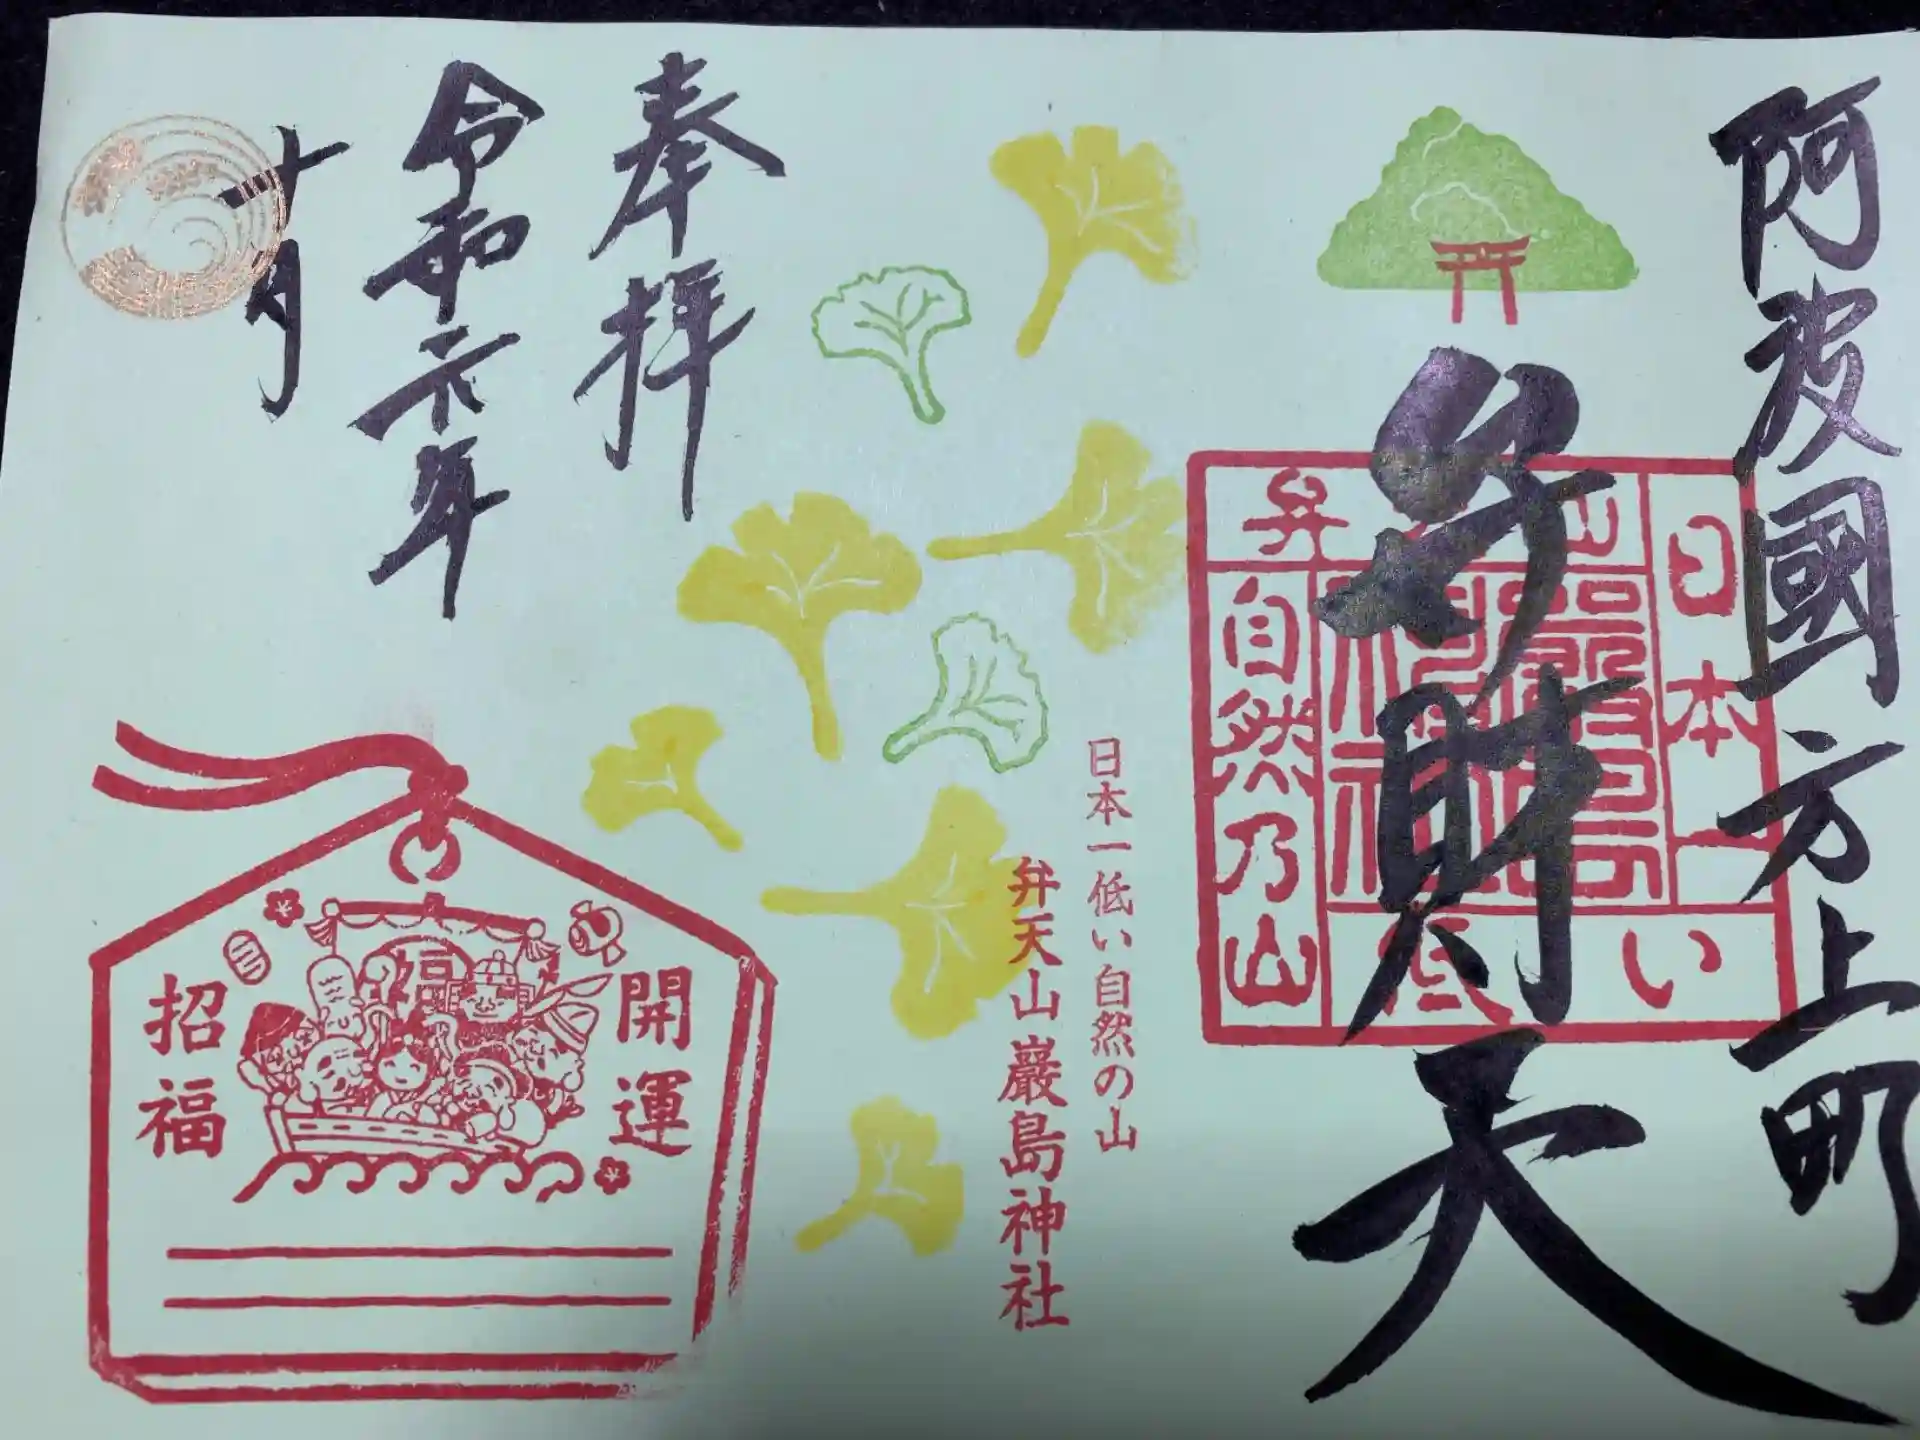 阿波國方上町
弁財天
日本一
い
低
山
弁
自然乃山
嚴島
神社
日本一低い自然の山
弁天山巖島神社
奉拝
令和六年
十月
開運
福
招福